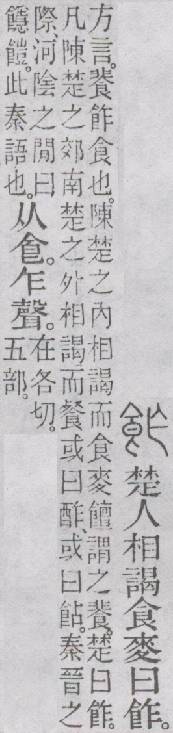 楚人相謁食麥曰飵。
方言。䬯飵食也。陳楚之內相謁而食麥饘謂之䬯。楚曰飵。
凡陳楚之郊南楚之外相謁而餐或曰飵、或曰䬤。秦晉之
際、河陰之閒曰
䭡䭓。此秦語也。从𠊊。乍聲。在各切。
五部。